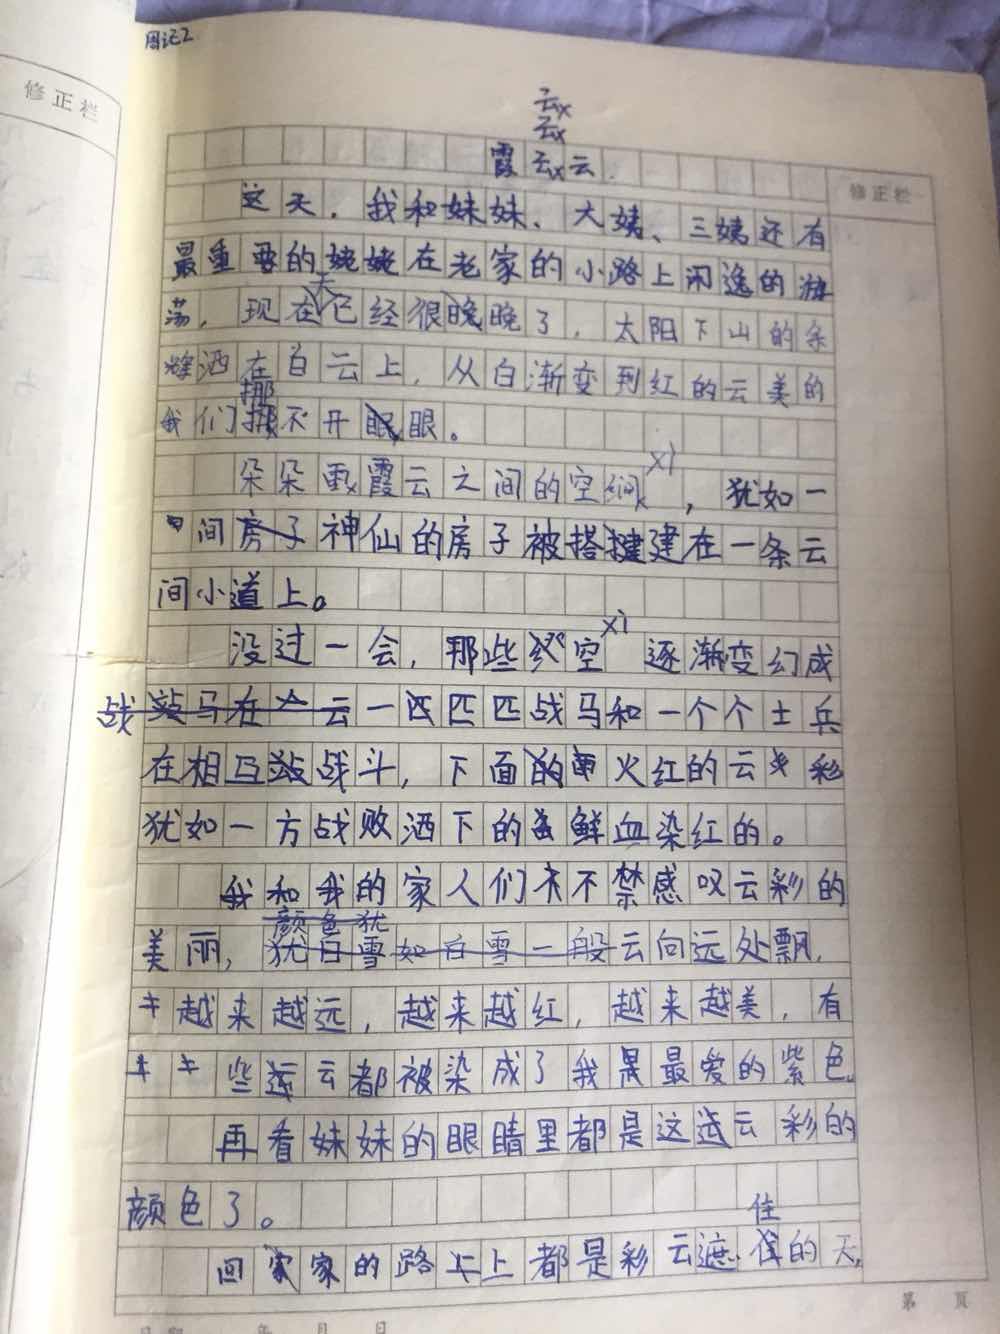 周记2
修正栏
云
云
霞云云
修正栏
这天，我和妹妹、大姨、三姨还有
最重要的姥姥在老家的小路上闲逸的游
天
荡，现在已经很晚晚了，太阳下山的余
辉洒在白云上，从白渐变到红的云美的
挪
我们挪不开眼眼。
xì
朵朵霞云之间的空，犹如一
间房子神仙的房子被搭建建在一条云
间小道上。
xì
没过一会，那些空逐渐变幻成
战马在云一匹匹匹战马和一个个士兵
在相互战斗，下面的火红的云彩
犹如一方战败洒下的鲜血染红的。
我和我的家人们不禁感叹云彩的
颜色犹
美丽，犹白雪如白雪一般云向远处飘，
越来越远，越来越红，越来越美，有
些云都被染成了我最爱的紫色。
再看妹妹的眼睛里都是这云彩的
颜色了。
住
回家家的路上上都是彩云遮住的天，
第 页
日期 年 月 日